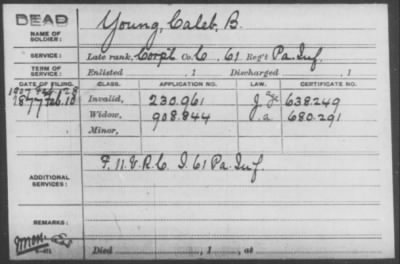 DEAD
NAME OF SOLDIER: Young, Caleb, B.
SERVICE: Late rank, Corpl Co. C, 61 Reg't Pa. Inf.
TERM OF SERVICE: Enlisted , 1 Discharged , 1
DATE OF FILING. CLASS. APPLICATION NO. LAW. CERTIFICATE NO.
Invalid, 230.961 638.249
1877 Feb. 10 Widow, 908.844 680.291
Minor,
ADDITIONAL SERVICES: I. 61 Pa. Inf.
REMARKS:
Died , 1 , at